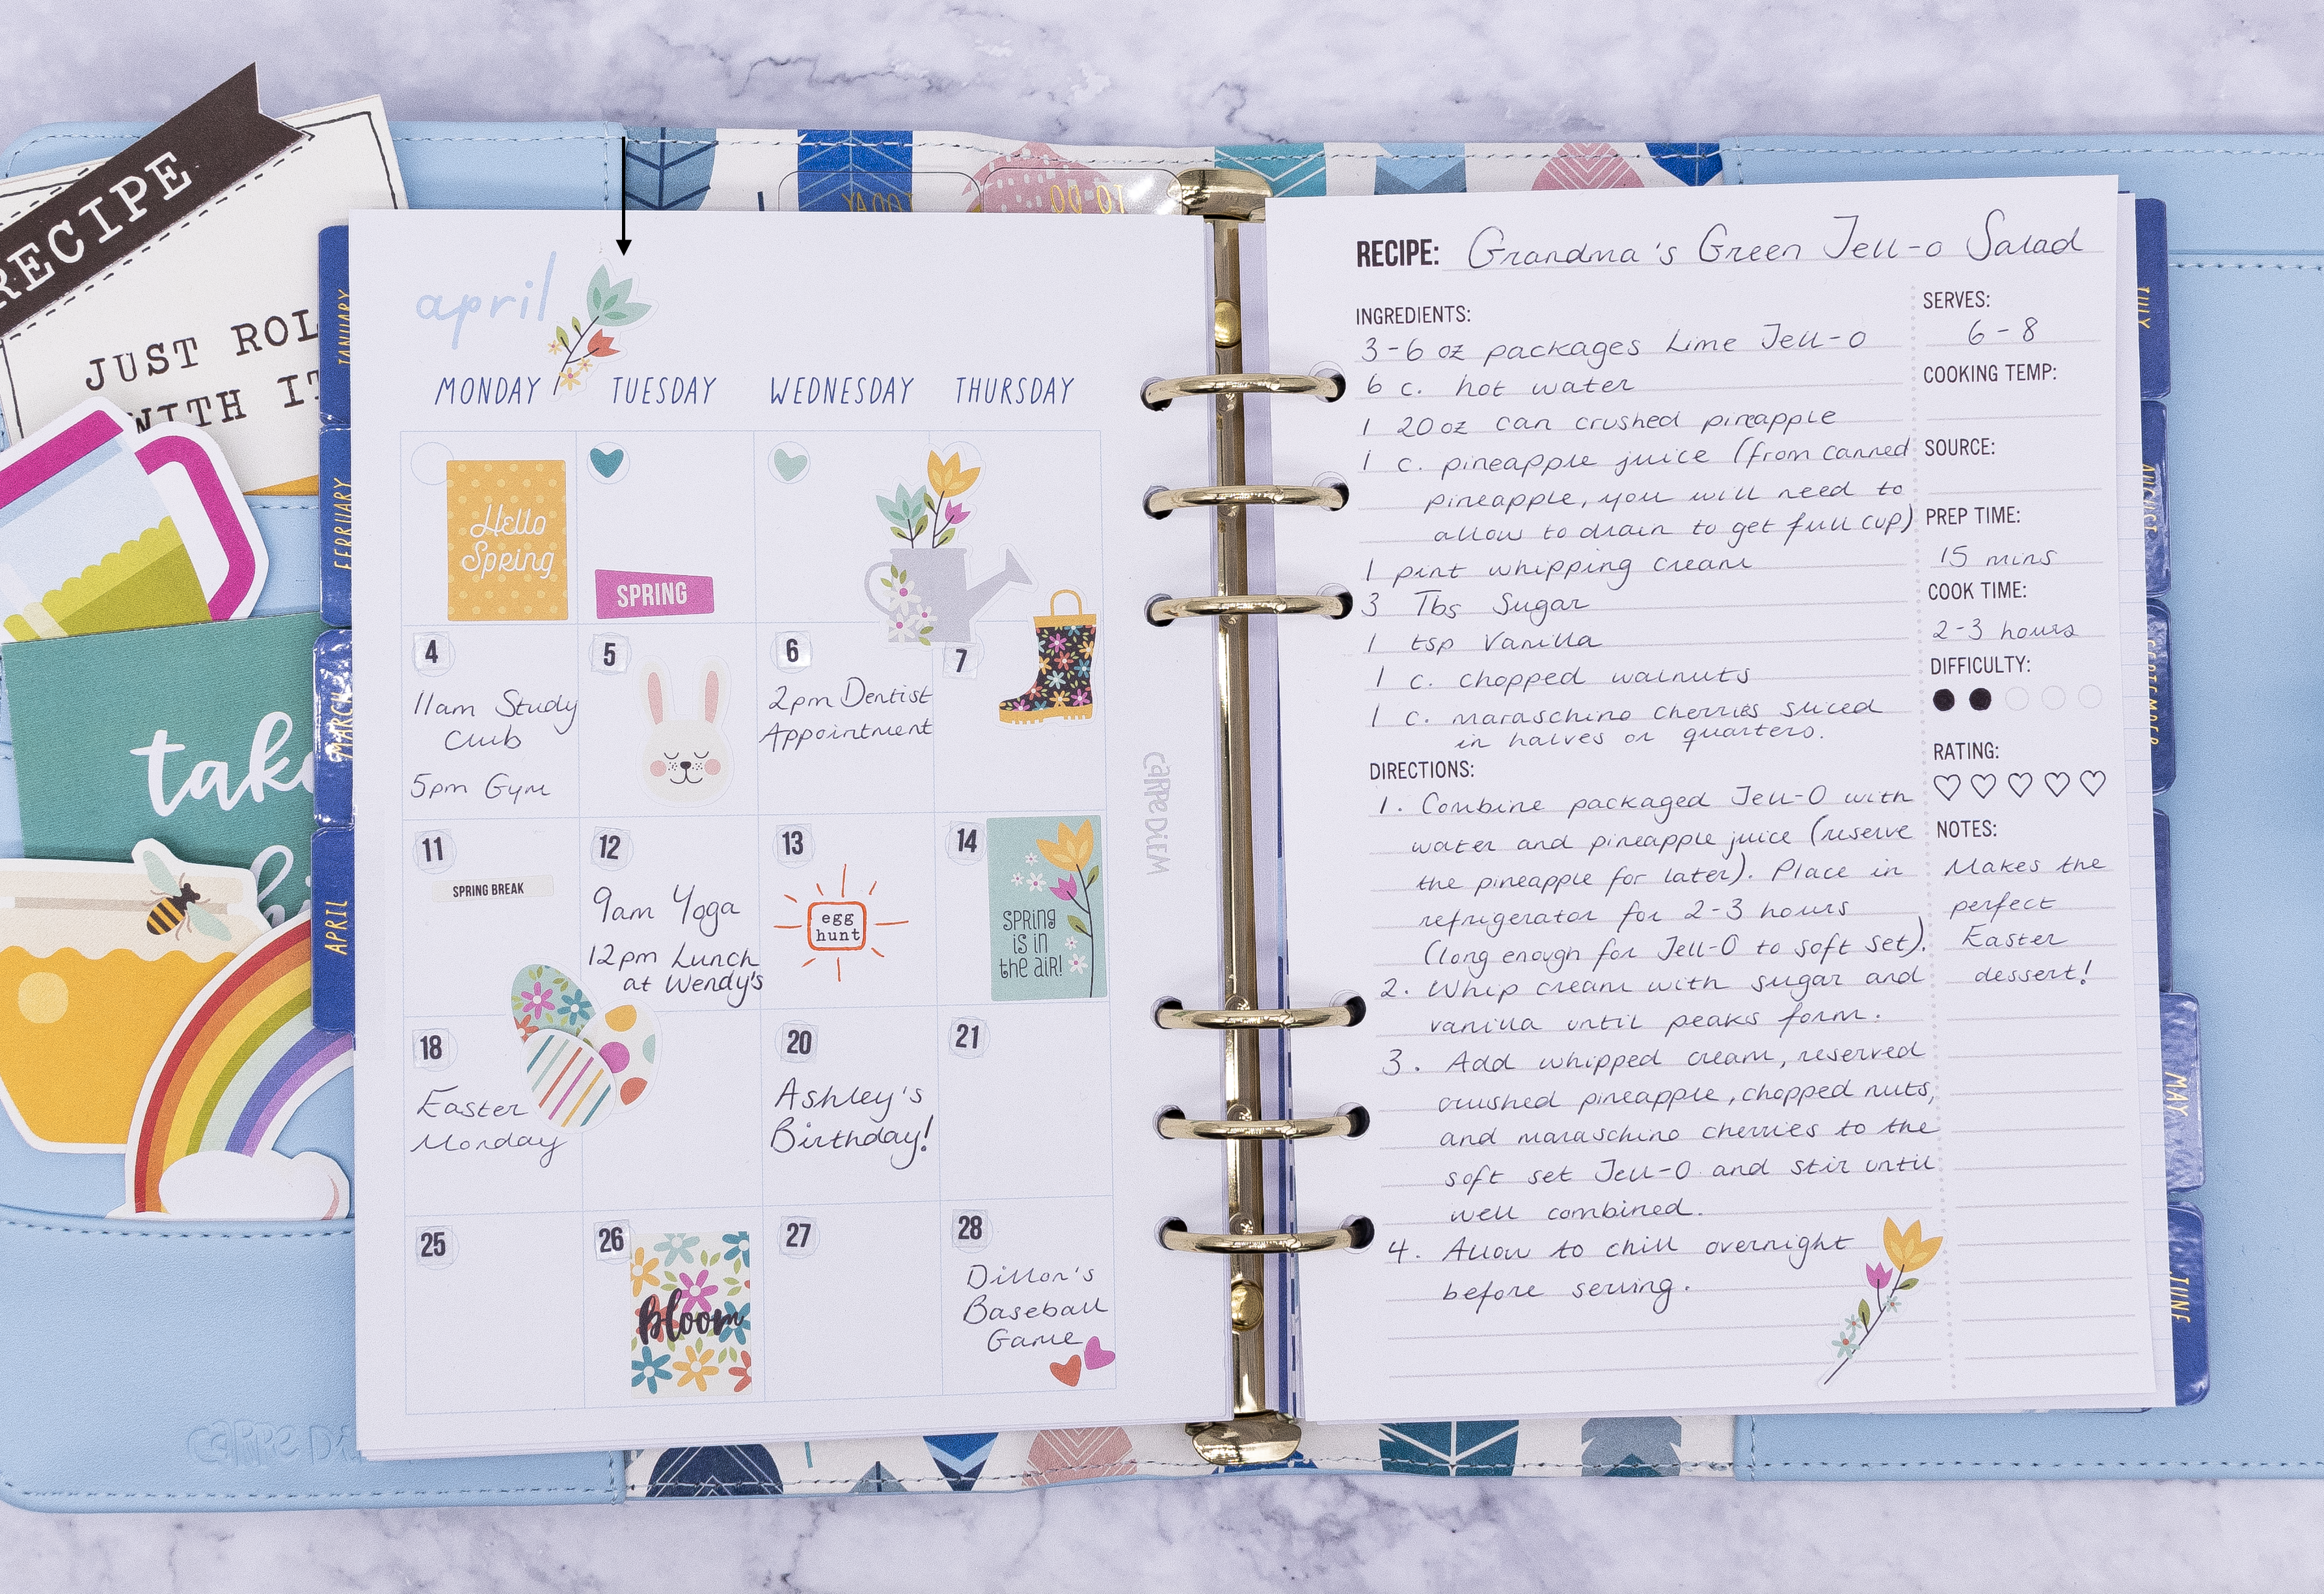 RECIPE
JUST ROL
WITH IT
take
TODAY
TO DO
JANUARY
FEBRUARY
MARCH
APRIL
april
MONDAY TUESDAY WEDNESDAY THURSDAY
Hello
Spring
SPRING
4 5 6 7
11am Study
Club
5pm Gym
2pm Dentist
Appointment
11 12 13 14
SPRING BREAK
9am Yoga
12pm Lunch
at Wendy's
egg
hunt
SPRING
is in
the air!
18 20 21
Easter
Monday
Ashley's
Birthday!
25 26 27 28
Bloom
Dillon's
Baseball
Game
CARPE DIEM
CARPE DI
RECIPE: Grandma's Green Jell-o Salad
INGREDIENTS:
3-6 oz packages Lime Jell-O
6 c. hot water
1 20 oz can crushed pineapple
1 c. pineapple juice (from canned
pineapple, you will need to
allow to drain to get full cup)
1 pint whipping cream
3 Tbs Sugar
1 tsp Vanilla
1 c. chopped walnuts
1 c. maraschino cherries sliced
in halves or quarters.
DIRECTIONS:
1. Combine packaged Jell-O with
water and pineapple juice (reserve
the pineapple for later). Place in
refrigerator for 2-3 hours
(long enough for Jell-O to soft set).
2. Whip cream with sugar and
vanilla until peaks form.
3. Add whipped cream, reserved
crushed pineapple, chopped nuts,
and maraschino cherries to the
soft set Jell-O and stir until
well combined.
4. Allow to chill overnight
before serving.
SERVES:
6-8
COOKING TEMP:
SOURCE:
PREP TIME:
15 mins
COOK TIME:
2-3 hours
DIFFICULTY:
RATING:
NOTES:
Makes the
perfect
Easter
dessert!
JULY
AUGUST
SEPTEMBER
MAY
JUNE